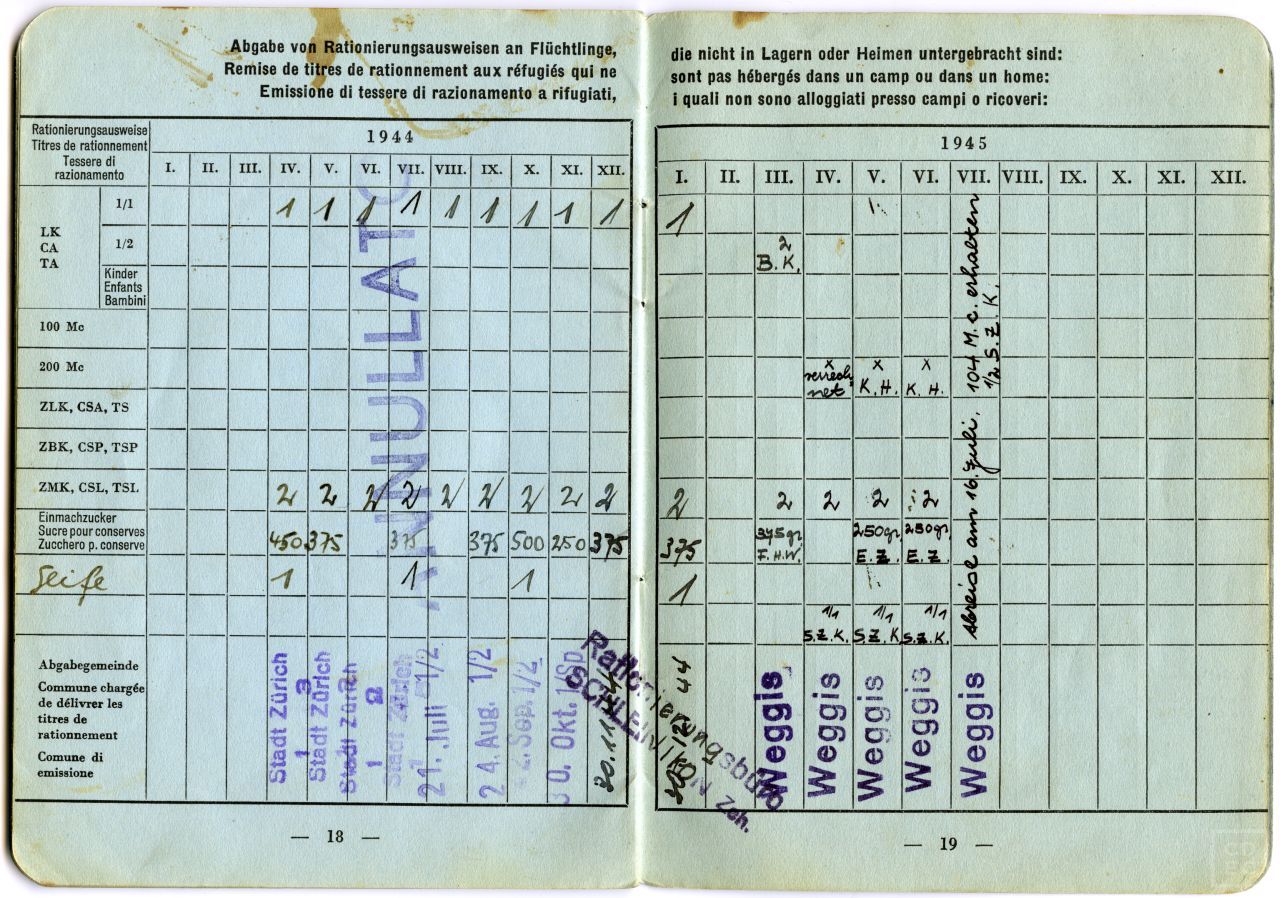 Abgabe von Rationierungsausweisen an Flüchtlinge,
Remise de titres de rationnement aux réfugiés qui ne
Emissione di tessere di razionamento a rifugiati,
Rationierungsausweise
Titres de rationnement
Tessere di
razionamento
1944
I. II. III. IV. V. VI. VII. VIII. IX. X. XI. XII.
LK
CA
TA
1/1 1 1 1 1 1 1 1 1 1
1/2
Kinder
Enfants
Bambini
100 Mc
200 Mc
ZLK, CSA, TS
ZBK, CSP, TSP
ZMK, CSL, TSL 2 2 2 2 2 2 2 2 2
Einmachzucker
Sucre pour conserves
Zucchero p. conserve
450 375 375 375 500 250 375
Seife 1 1 1
ANNULLATO
Abgabegemeinde
Commune chargée
de délivrer les
titres de
rationnement
Comune di
emissione
Stadt Zürich
1
Stadt Zürich
3
Stadt Zürich
1 2
Stadt Zürich
21. Juli 1/2
24. Aug. 1/2
2. Sep. 1/2
30. Okt. 1/Sp
30.11.44
— 18 —
die nicht in Lagern oder Heimen untergebracht sind:
sont pas hébergés dans un camp ou dans un home:
i quali non sono alloggiati presso campi o ricoveri:
1945
I. II. III. IV. V. VI. VII. VIII. IX. X. XI. XII.
1 1
2
B.K.
x x x
verrech
net K.H. K.H.
2 2 2 2 2
375 375gr 250gr 250gr
F.H.W. E.Z. E.Z.
1
1/1 1/1 1/1
S.Z.K. S.Z.K. S.Z.K.
Abreise am 16. Juli. 104 M.c. erhalten
1/2 S.Z.K.
Rationierungsbüro
Zch.
Weggis
Weggis
Weggis
Weggis
Weggis
— 19 —